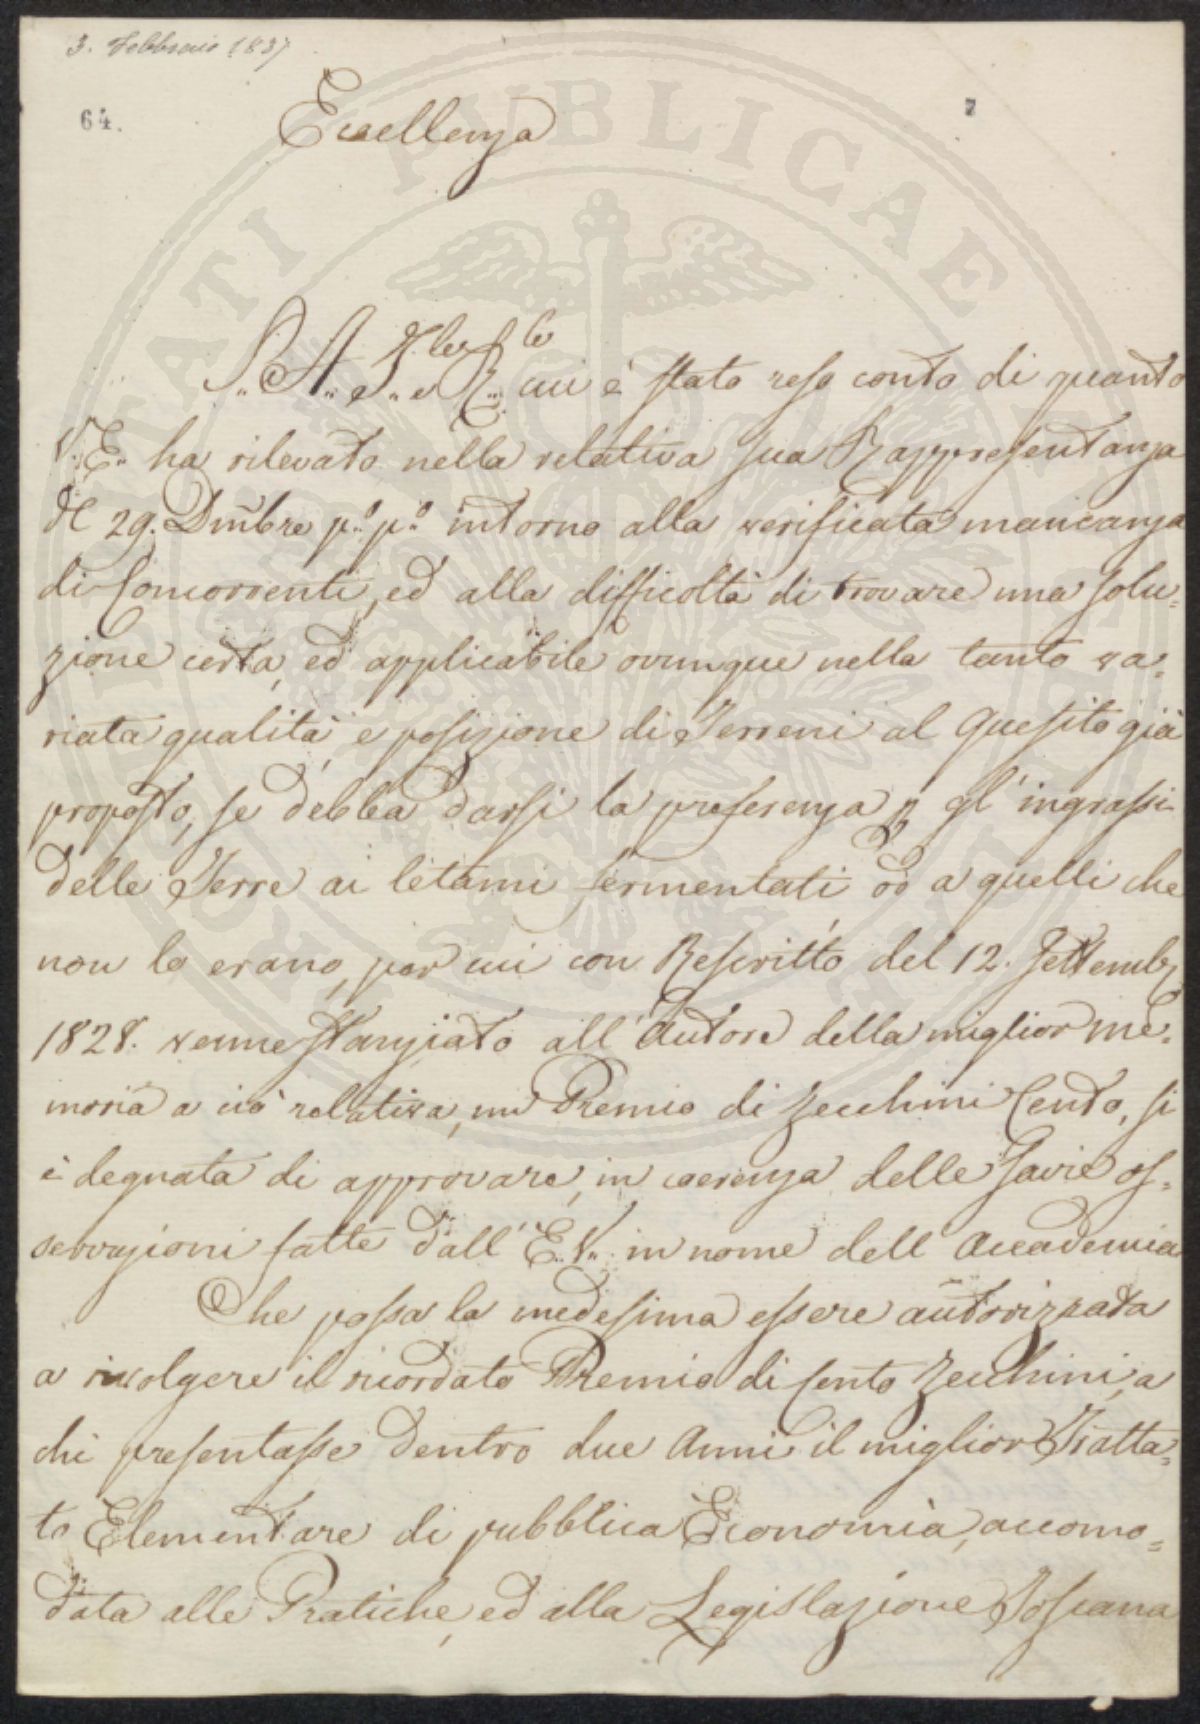 3. Febbraio 1837
64.
7
Eccellenza
S.. A.. I.. e R.. cui è stato reso conto di quanto
V.. E.. ha rilevato nella relativa sua Rappresentanza
de 29. Dmbre p.o p.o intorno alla verificata mancanza
di Concorrenti, ed alla difficoltà di trovare una solu=
zione certa, ed applicabile ovunque nella tanto va=
riata qualità, e posizione di Terreni al Quesito già
proposto, se debba darsi la preferenza p gl'ingrassi
delle Terre ai letami fermentati, od a quelli che
non lo erano, per cui con Rescritto del 12. Settembre
1828. venne stanziato all'Autore della miglior me=
moria a ciò relativa, un Premio di Zecchini Cento, si
è degnata di approvare, in coerenza delle savie os=
servazioni fatte dall'E.. V.. in nome dell'Accademia
Che possa la medesima essere autorizzata
a rivolgere il ricordato Premio di Cento Zecchini, a
chi presentasse dentro due Anni il miglior Tratta=
to Elementare di pubblica Economia, accomo=
data alle Pratiche, ed alla Legislazione Toscana